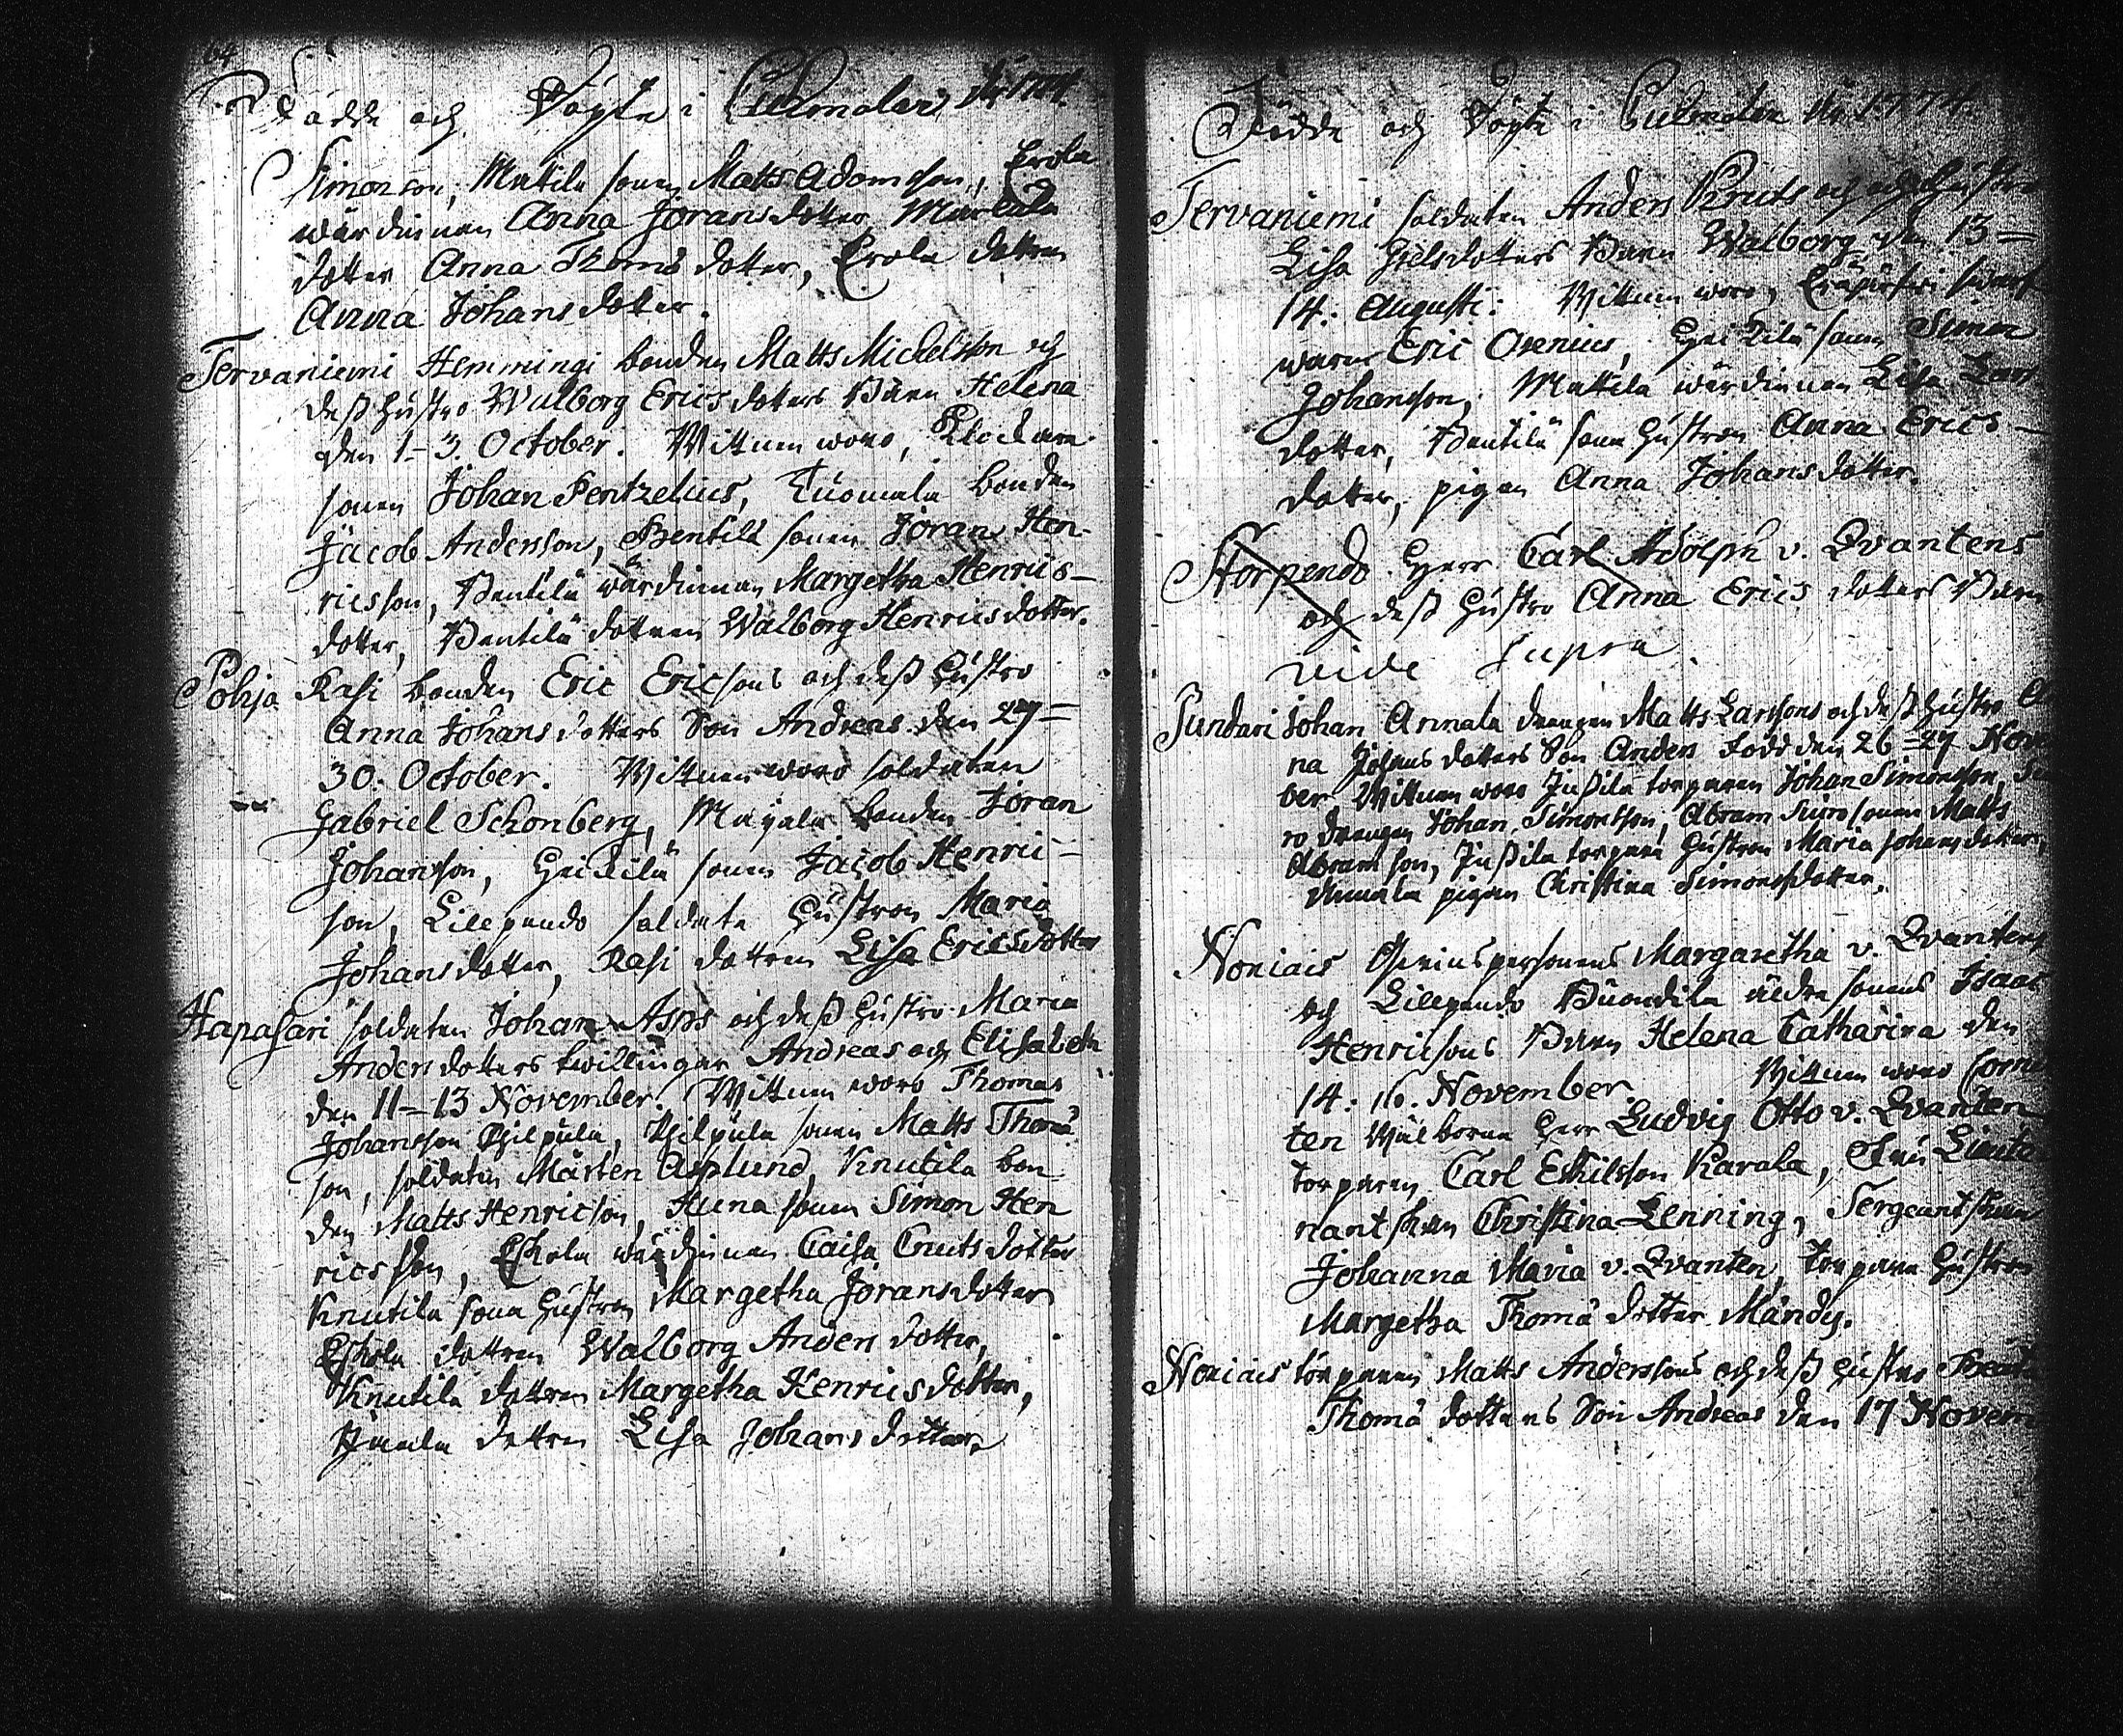 64
Födde och Döpte i Culmalax År 1774
Simonson, Mutila sonen Matts Adamsson, Erola
wärdinnan Anna Joransdotter, Mareala
dotter Anna Thomsdotter, Erola dottren
Anna Johansdotter.
Tervaniemi Hemmingi bonden Matts Michelsson och
dess hustro Walborg Ericsdotters Barn Helena
den 1-3. October. Wittnen woro, Klockare
sonen Johan Pentzelius, Tuomala bonden
Jacob Andersson, Bentilä sonen Joran Hen-
ricsson, Bentilä wärdinnan Margetha Henrics-
dotter, Bentilä dottren Walborg Henricsdotter.
Pohja Rasi bonden Eric Ericsons och dess hustro
Anna Johansdotters Son Andreas den 29=
30. October. Wittnen woro soldaten
Gabriel Schonberg, Mujala bonden Joran
Johansson, Heikilä sonen Jacob Henric-
son, Lilependo soldate hustron Maria
Johansdotter, Rasi dottren Lisa Ericsdotter
Hapasari soldaten Johan Asps och dess hustro Maria
Andersdotters twillingar Andreas och Elisabeth
den 11-13 November. Wittnen woro Thomas
Johansson Kilpula, Kilpula sonen Matts Thoma
son, soldaten Mårten Asplund, Knutila bon
den Matts Henricson, Kuna sonen Simon Hen
ricsson, Eskola wärdinnan Caisa Cnutsdotter
Knutila sone hustron Margetha Joransdotter
Eskola dottren Walborg Andersdotter,
Knutila dottren Margetha Henricsdotter,
dottren Lisa Johansdotter.
Födde och Döpte i Culmalax År 1774.
Tervaniemi soldaten Anders Kruts och dess hustro
Lisa Gretsdotters Barn Walborg den 13=
14. Augusti. Wittnen woro, swarf
waren Eric Orenius, Heikilä sonen Simon
Johansson, Mattila wärdinnan Lisa Lars
dotter, Bentilä sone hustron Anna Erics-
dotter, pigan Anna Johansdotter.
Storpendo Herr Carl Adolph v. Qvantens
och dess hustro Anna Ericsdotters Barn
vide supra.
Sundari Johan Annala drengen Matts Larssons och dess hustro An
na Johansdotters Son Anders född den 26-27 Novem
ber Wittnen woro Jussila torparen Johan Simonsson, Su
ro drengen Johan Simonsson, Abram Suro sonen Matts
Abramson, Jussila torpare hustron Maria Johansdotter,
Annala pigan Christina Simonsdotter.
Noriais Qwinspersonens Margaretha v. Qvantens
och Lillependo Buondila äldre sonens Isaac
Henricsons Barn Helena Catharina den
14. 16. November. Wittnen woro Corne
ten Wälborne Herr Ludvig Otto v. Qvanten
torparen Carl Eskilsson Karala, Fru Lieute
nantskan Christina Lenning, Sergeantskan
Johanna Maria v. Qvanten, torpare hustron
Margetha Thomä dotter Mändy.
Noriais torparen Matts Anderssons och dess hustro Beata
Thomä dotters Son Andreas den 17 Novem